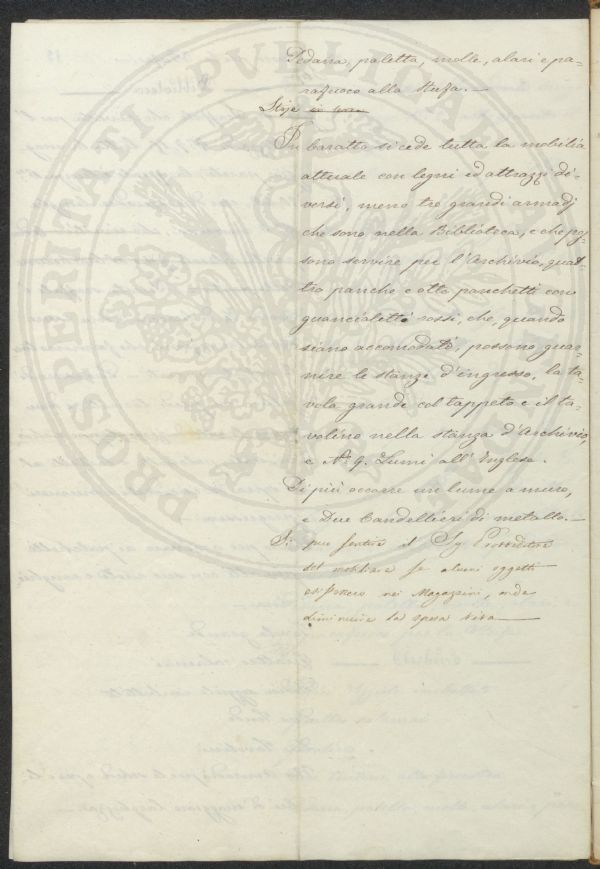 Pedana, paletta, molle, alari e pa-
rafuoco alla stufa. —
Stoje
In baratto si cede tutta la mobilia
attuale con legni ed attrazzi di-
versi, meno tre grandi armadj
che sono nella Biblioteca, e che pos-
sono servire per l'Archivio, quat-
tro panche e otto panchetti con
guancialetti rossi, che, quando
siano accomodati, possono guar-
nire le stanze d'ingresso, la ta-
vola grande col tappeto e il ta-
volino nella stanza d'Archivio,
e N. 9. Lumi all'Inglese.
Di più occorre un lume a muro,
e Due Candellieri di metallo. —
Si può sentire il Sig Provveditore
del mobiliare se alcuni oggetti
esistessero nei Magazzini, onde
diminuire la spesa viva —
PROSPERITATI PUBLICAE